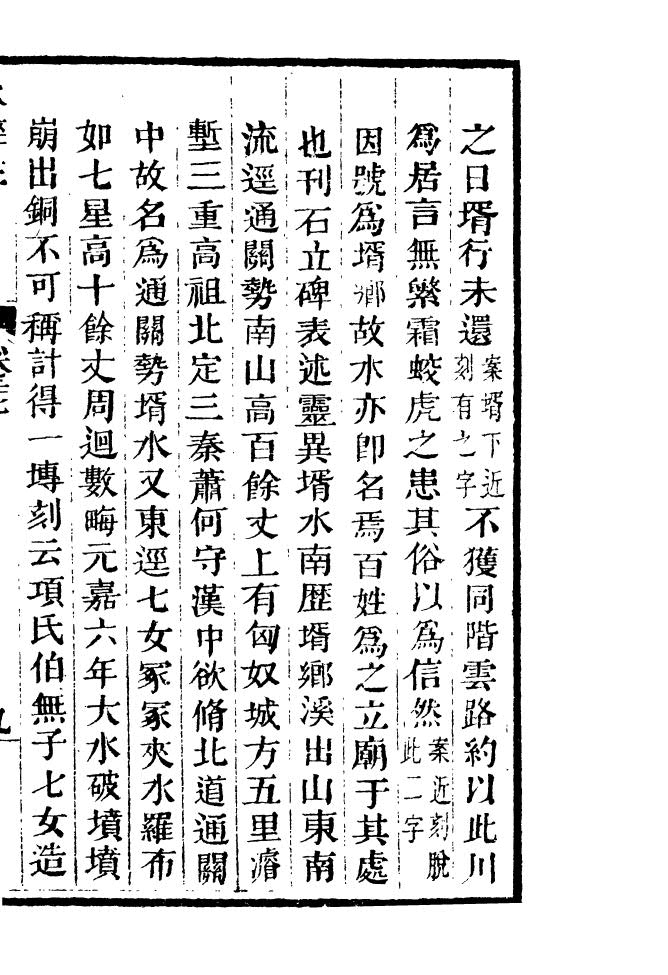 之日壻行未還案壻下近刻有之字不獲同階雲路約以此川
爲居言無繁霜蛟虎之患其俗以爲信然案近刻脫此二字
因號爲壻鄉故水亦卽名焉百姓爲之立廟于其處
也刊石立碑表述靈異壻水南歷壻鄉溪出山東南
流逕通關勢南山高百餘丈上有匈奴城方五里濬
塹三重高祖北定三秦蕭何守漢中欲脩北道通關
中故名爲通關勢壻水又東逕七女冢冢夾水羅布
如七星高十餘丈周迴數畮元嘉六年大水破墳墳
崩出銅不可稱計得一塼刻云項氏伯無子七女造